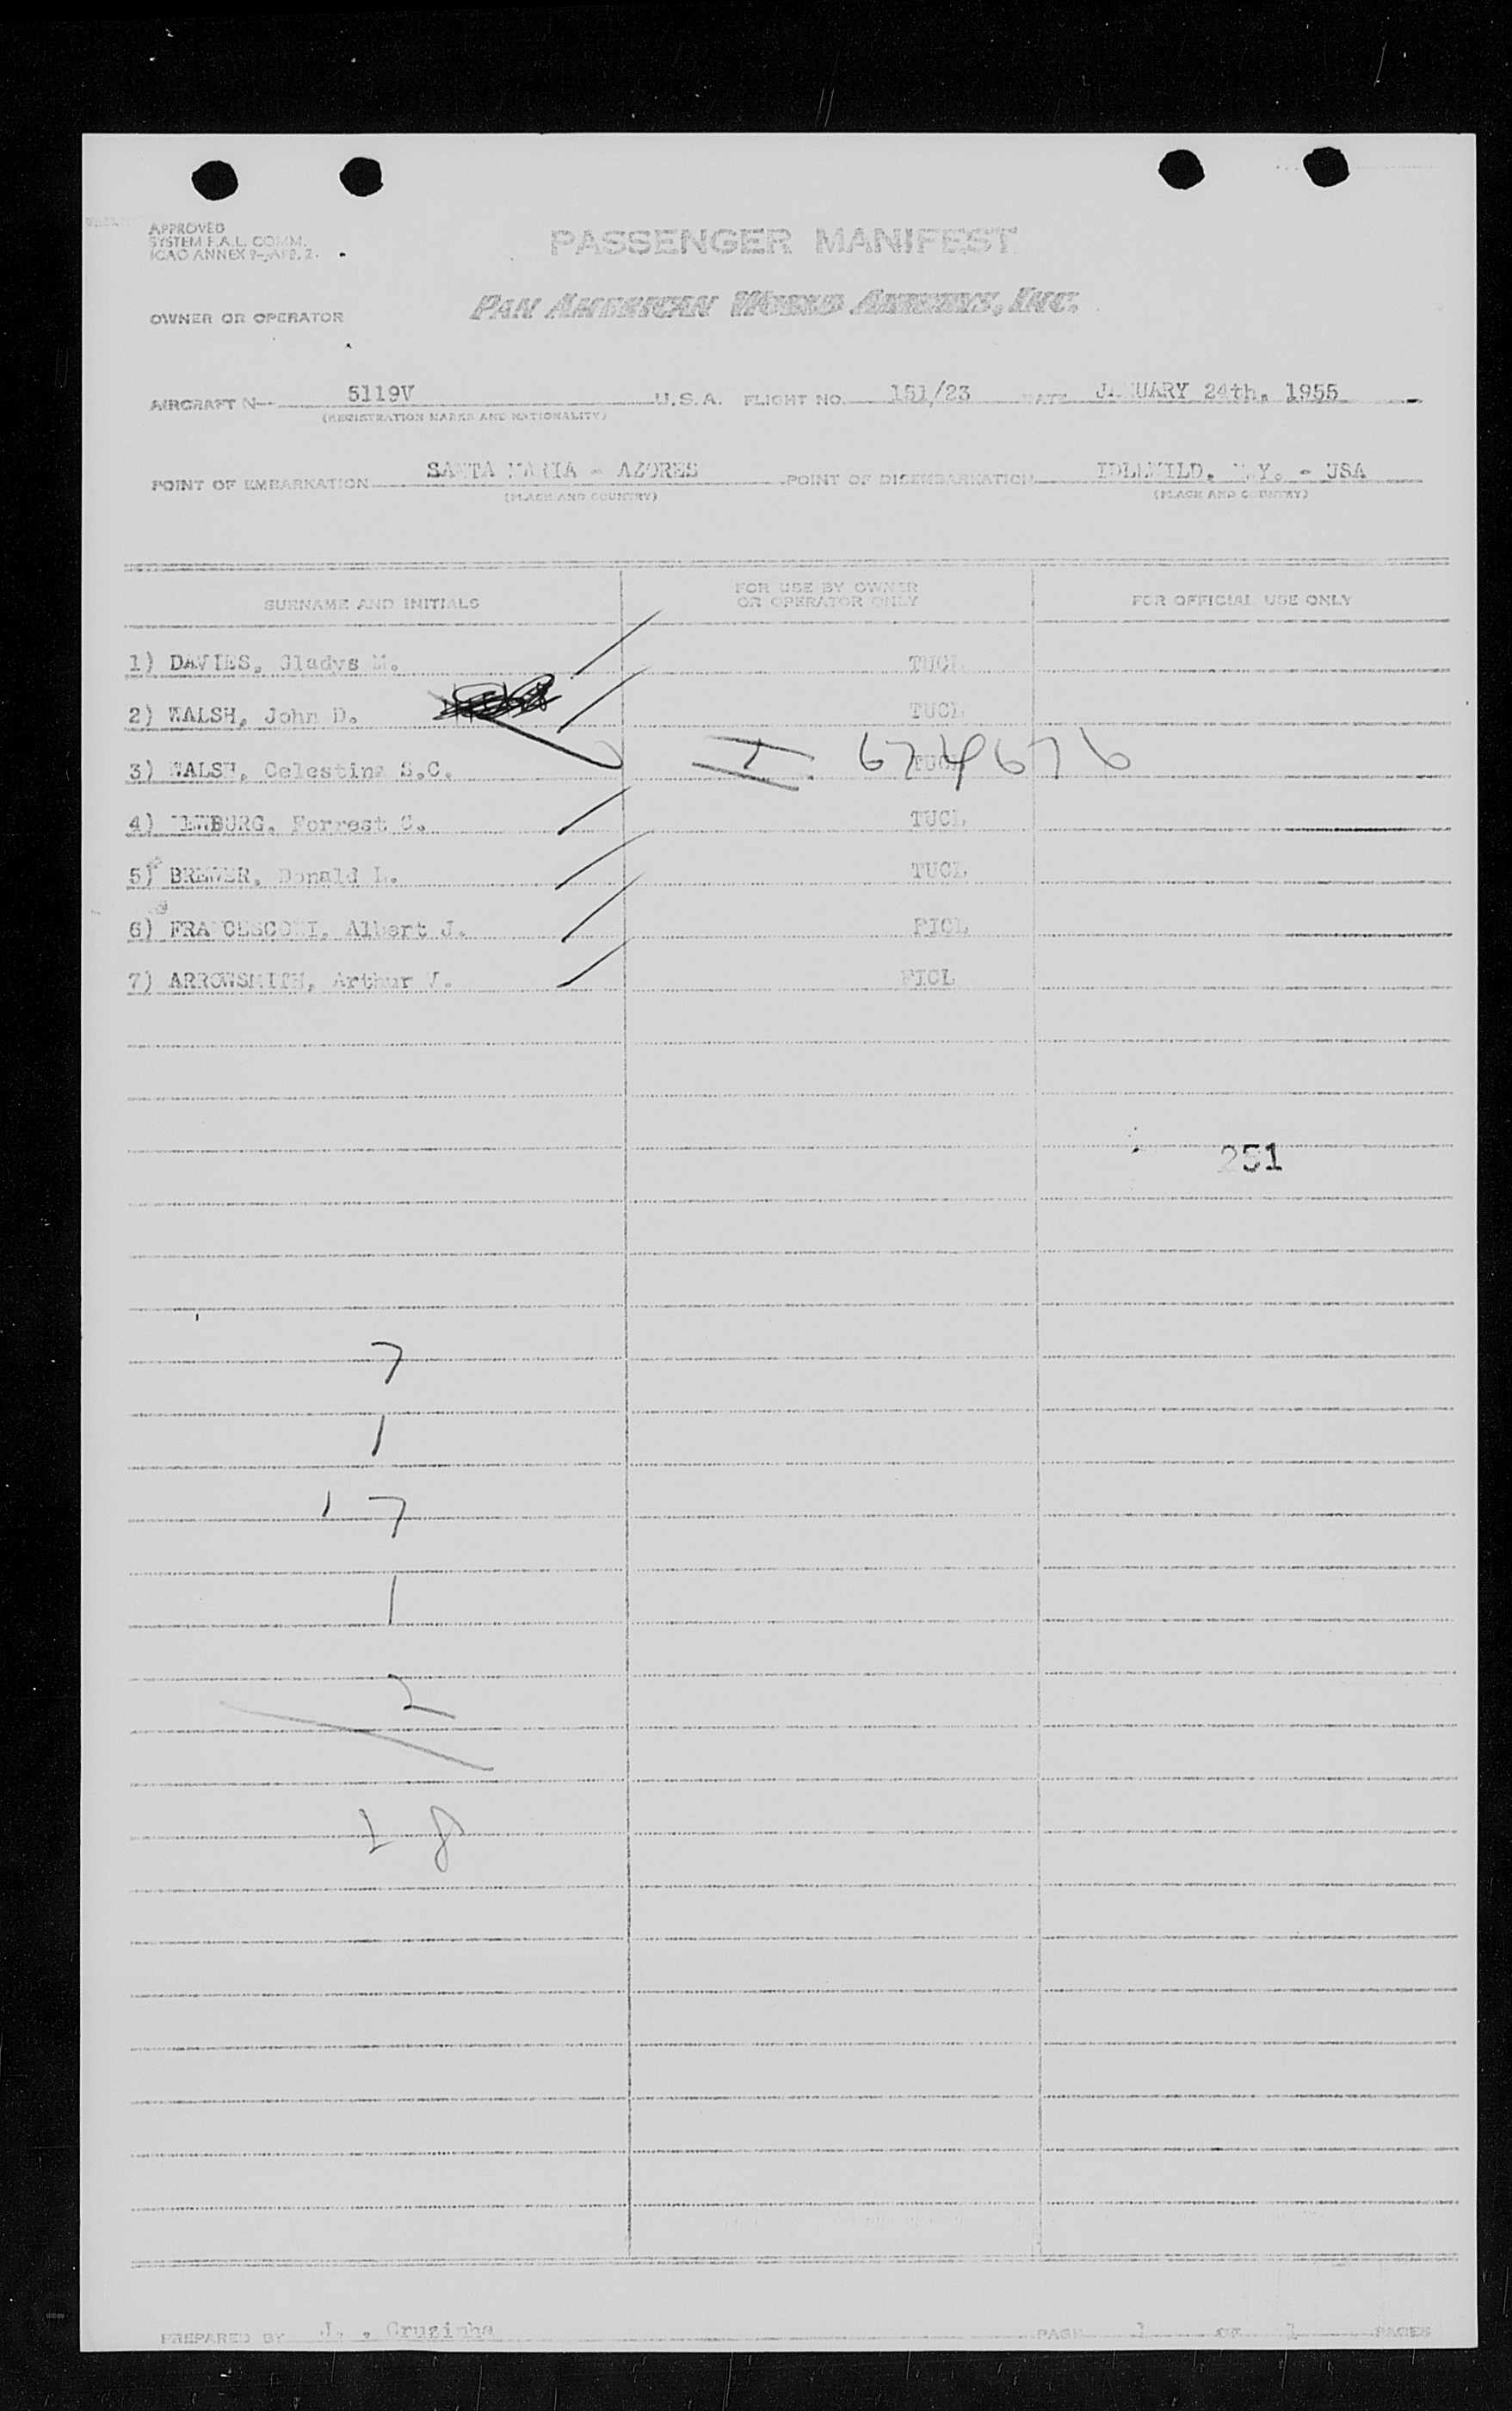 APPROVED
SYSTEM F.A.L. COMM.
ICAO ANNEX 9-APP. 2.
PASSENGER MANIFEST
PAN AMERICAN WORLD AIRWAYS, INC.
OWNER OR OPERATOR
AIRCRAFT N 5119V U.S.A. FLIGHT NO. 151/23 DATE JANUARY 24th, 1955
(REGISTRATION MARKS AND NATIONALITY)
POINT OF EMBARKATION SANTA MARIA - AZORES POINT OF DISEMBARKATION IDLEWILD, N.Y. - USA
(PLACE AND COUNTRY) (PLACE AND COUNTRY)
SURNAME AND INITIALS FOR USE BY OWNER OR OPERATOR ONLY FOR OFFICIAL USE ONLY
1) DAVIES, Gladys M. TUCL
2) WALSH, John D. TUCL
3) WALSH, Celestina S.C. TUCL I. 624676
4) NEWBURG, Forrest C. TUCL
5) BREWER, Donald L. TUCL
6) FRANCESCONI, Albert J. FICL
7) ARROWSMITH, Arthur V. FICL
251
7
1
17
1
2
18
PREPARED BY J. Cruzinha PAGE 1 OF 1 PAGES